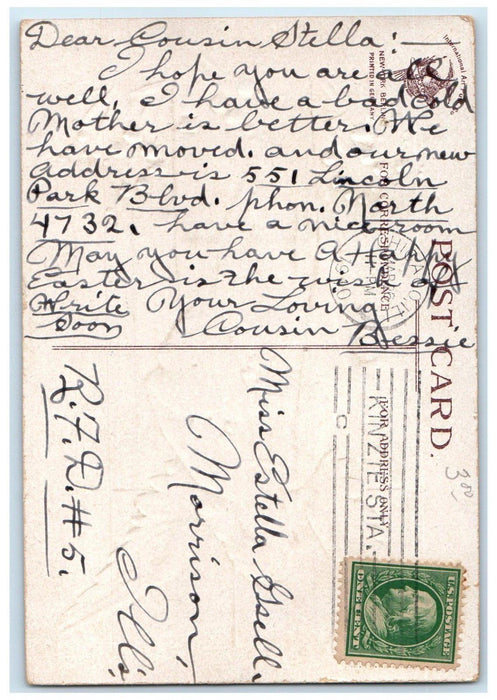 Dear Cousin Stella:-
I hope you are all
well. I have a bad cold
Mother is better. We
have moved. and our new
address is 551 Lincoln
Park Blvd. phon. North
4732. have a nice room
May you have a Happy
Easter is the wish of
Write Your Loving
Soon Cousin Bessie
International Art
NEW YORK BERLIN
PRINTED IN GERMANY
FOR CORRESPONDENCE
POST CARD.
FOR ADDRESS ONLY
KINZIE STA.
3.00
Miss Estella
Morrison,
Ills.
R.F.D.#5.
U.S. POSTAGE